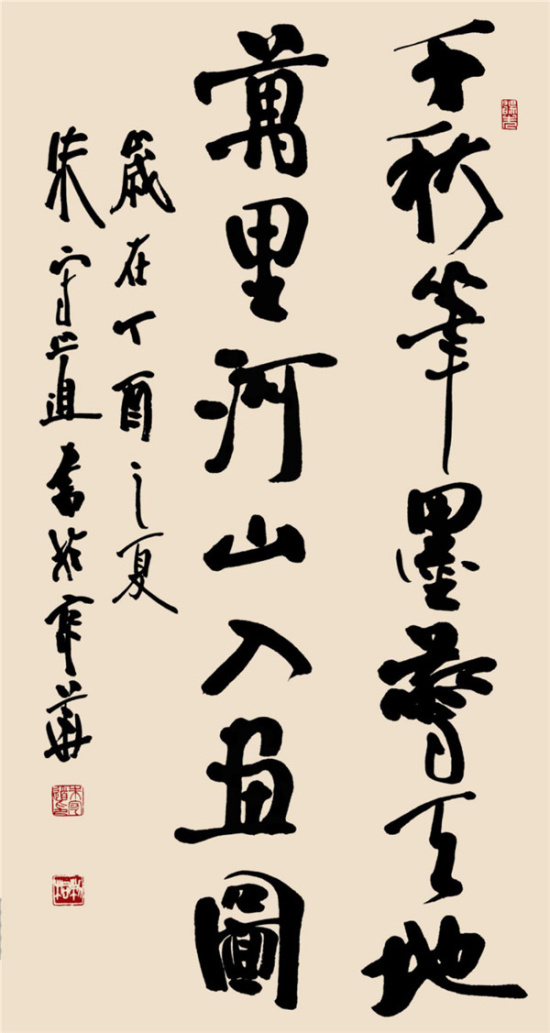 千秋筆墨驚天地
萬里河山入畫圖
歲在丁酉之夏
朱守道書於京華